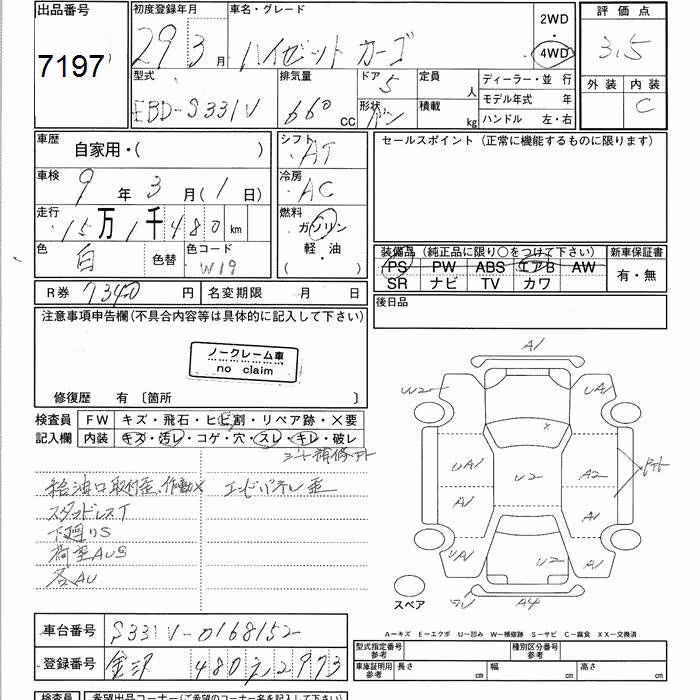 出品番号
7197
初度登録年月
29 3月
車名・グレード
ハイゼットカーゴ
2WD
4WD
評価点
3.5
外装 内装
C
型式
EBD-S331V
排気量
660 CC
ドア 5
形状 バン
定員 人
積載 kg
ディーラー・並行
モデル年式 年
ハンドル 左・右
車歴
自家用・( )
車検
9年3月(1日)
走行
15万1千480km
色
白
色替
色コード
W19
シフト
AT
冷房
AC
燃料
ガソリン
軽・油
( )
セールスポイント(正常に機能するものに限ります)
装備品(純正品に限り〇をつけて下さい)
PS PW ABS エアB AW
SR ナビ TV カワ
新車保証書
有・無
R券 7340円
名変期限 月 日
後日品
注意事項申告欄(不具合内容等は具体的に記入して下さい)
ノークレーム車
no claim
修復歴 有〔箇所 〕
検査員
記入欄
FW キズ・飛石・ヒビ割・リペア跡・×要
内装 キズ・汚レ・コゲ・穴・スレ・キレ・破レ
シート補修アト
給油口取付歪、作動× エンドパネル歪
スタッドレスT
下廻りS
荷室AUS
各AU
A1
W2
UA1
UA1
A1
UA1
U2
A2
A1
U2
A1
A4
スペア
A−キズ E−エクボ U−凹み W−補修跡 S−サビ C−腐食 XX−交換済
車台番号
S331V-0168152
登録番号
金沢 480え2973
型式指定番号
参考
種別区分番号
参考
車庫証明用
参考
長さ cm
幅 cm
高さ cm
検査員
希望出品コーナー(ご希望のコーナー名を記入して下さい)